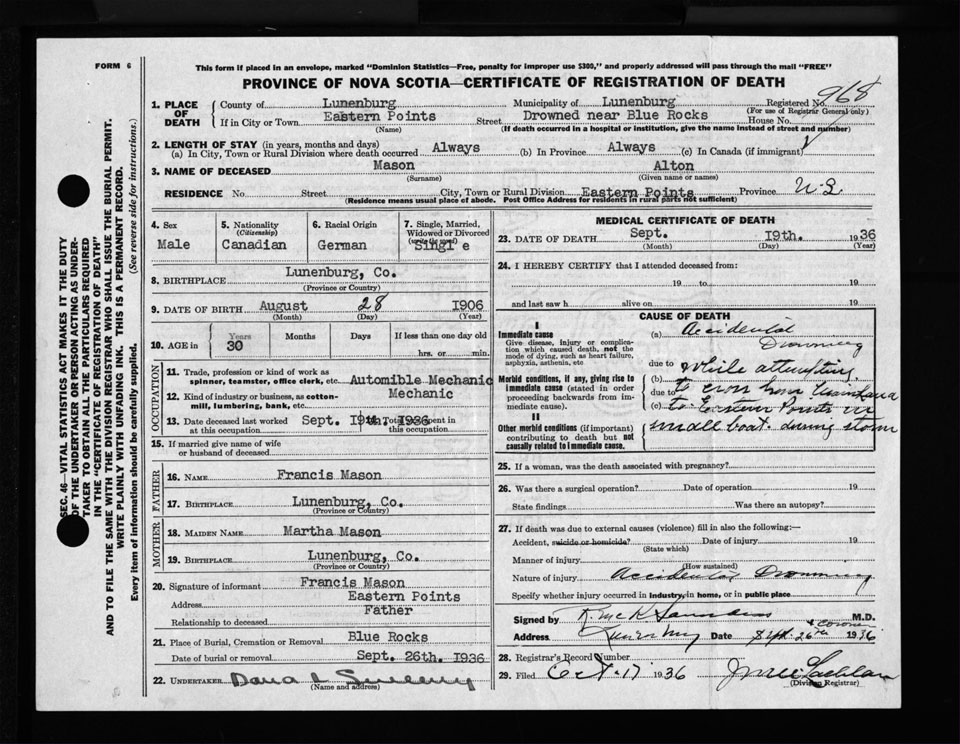 FORM 6
This form if placed in an envelope, marked "Dominion Statistics—Free, penalty for improper use $300," and properly addressed will pass through the mail "FREE"
PROVINCE OF NOVA SCOTIA—CERTIFICATE OF REGISTRATION OF DEATH
968
SEC. 46—VITAL STATISTICS ACT MAKES IT THE DUTY
OF THE UNDERTAKER OR PERSON ACTING AS UNDER-
TAKER TO OBTAIN ALL THE PARTICULARS REQUIRED
IN THE "CERTIFICATE OF REGISTRATION OF DEATH"
AND TO FILE THE SAME WITH THE DIVISION REGISTRAR WHO SHALL ISSUE THE BURIAL PERMIT.
WRITE PLAINLY WITH UNFADING INK. THIS IS A PERMANENT RECORD.
Every item of information should be carefully supplied. (See reverse side for instructions.)
1. PLACE OF DEATH
County of Lunenburg Municipality of Lunenburg Registered No.
(For use of Registrar General only)
If in City or Town Eastern Points Street Drowned near Blue Rocks House No.
(Name) (If death occurred in a hospital or institution, give the name instead of street and number)
2. LENGTH OF STAY (in years, months and days)
(a) In City, Town or Rural Division where death occurred Always (b) In Province Always (c) In Canada (if immigrant)
3. NAME OF DECEASED Mason Alton
(Surname) (Given name or names)
RESIDENCE No. Street City, Town or Rural Division Eastern Points Province N.S.
(Residence means usual place of abode. Post Office Address for residents in rural parts not sufficient)
4. Sex
Male
5. Nationality
(Citizenship)
Canadian
6. Racial Origin
German
7. Single, Married,
Widowed or Divorced
(write the word)
Singl e
8. BIRTHPLACE Lunenburg, Co.
(Province or Country)
9. DATE OF BIRTH August 28 1906
(Month) (Day) (Year)
10. AGE in Years Months Days If less than one day old
30 hrs. or min.
OCCUPATION
11. Trade, profession or kind of work as
spinner, teamster, office clerk, etc. Automible Mechanic
12. Kind of industry or business, as cotton-
mill, lumbering, bank, etc. Mechanic
13. Date deceased last worked
at this occupation Sept. 19th. 1936
14. Total years spent in
this occupation
15. If married give name of wife
or husband of deceased
FATHER
16. NAME Francis Mason
17. BIRTHPLACE Lunenburg, Co.
(Province or Country)
MOTHER
18. MAIDEN NAME Martha Mason
19. BIRTHPLACE Lunenburg, Co.
(Province or Country)
20. Signature of informant Francis Mason
Address Eastern Points
Relationship to deceased Father
21. Place of Burial, Cremation or Removal Blue Rocks
Date of burial or removal Sept. 26th. 1936
22. UNDERTAKER Dana L Sweeny
(Name and address)
MEDICAL CERTIFICATE OF DEATH
23. DATE OF DEATH Sept. 19th. 1936
(Month) (Day) (Year)
24. I HEREBY CERTIFY that I attended deceased from:
19 to 19
and last saw h alive on 19
CAUSE OF DEATH
I
Immediate cause
Give disease, injury or complica-
tion which caused death, not the
mode of dying, such as heart failure,
asphyxia, asthenia, etc
(a) Accidental
Drowning
due to while attempting
Morbid conditions, if any, giving rise to
immediate cause (stated in order
proceeding backwards from im-
mediate cause).
(b)
due to to cross from
(c) to Eastern Points in
II
Other morbid conditions (if important)
contributing to death but not
causally related to immediate cause.
small boat during storm
25. If a woman, was the death associated with pregnancy?
26. Was there a surgical operation? Date of operation 19
State findings Was there an autopsy?
27. If death was due to external causes (violence) fill in also the following:—
Accident, suicide or homicide? Date of injury 19
(State which)
Manner of injury
(How sustained)
Nature of injury Accidental Drowning
Specify whether injury occurred in industry, in home, or in public place
Signed by M.D.
& Coroner
Address Date Sept. 26th 1936
28. Registrar's Record Number
29. Filed Oct. 17 1936 J McLachlan
(Division Registrar)